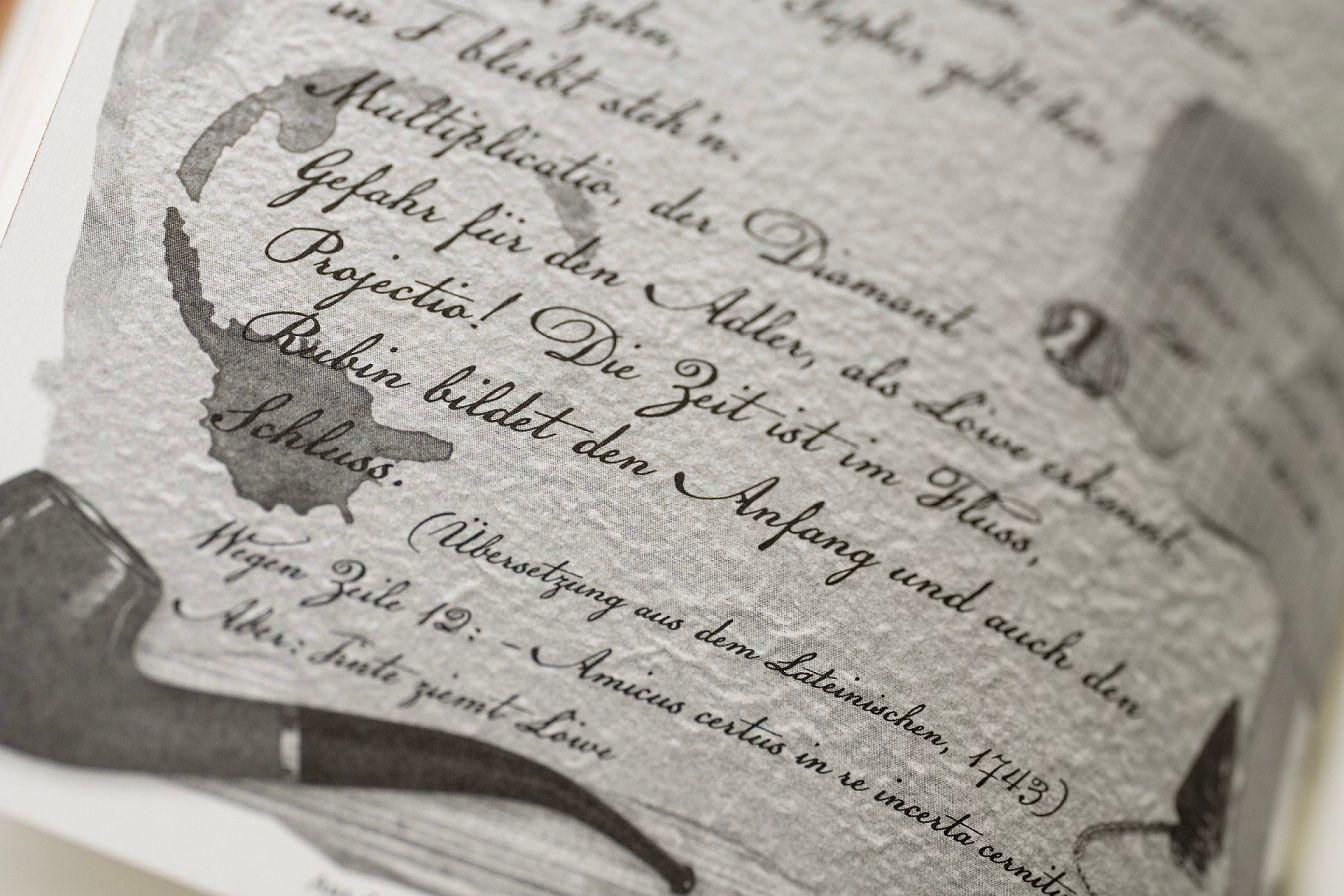 zehn,
Saphir geht hin,
in F bleibt steh'n.
Multiplicatio, der Diamant
Gefahr für den Adler, als Löwe erkannt.
Projectio! Die Zeit ist im Fluss,
Rubin bildet den Anfang und auch den
Schluss.
(Übersetzung aus dem Lateinischen, 1743)
Wegen Zeile 12: - Amicus certus in re incerta cernitur
Aber: Tinte ziemt Löwe